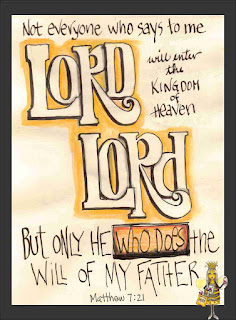 Not everyone who says to me
LORD
will enter
the
KINGDOM
of
Heaven
LORD
BUT ONLY HE WHO DOES the
WILL OF MY FATHER
Matthew 7:21